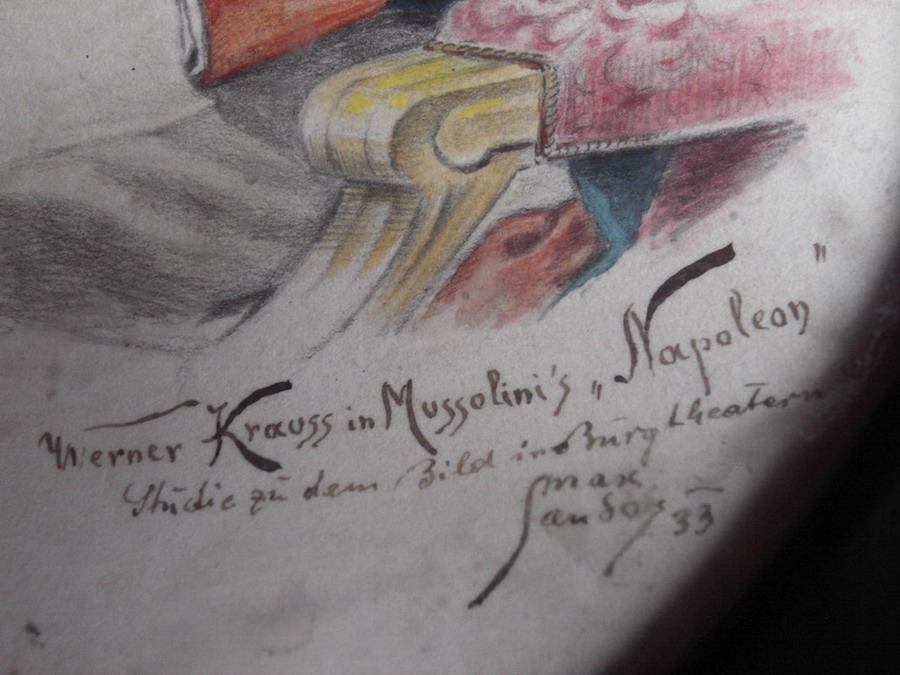 Werner Krauss in Mussolini's „Napoleon"
Studie zu dem Bild in Burgtheater
max
33